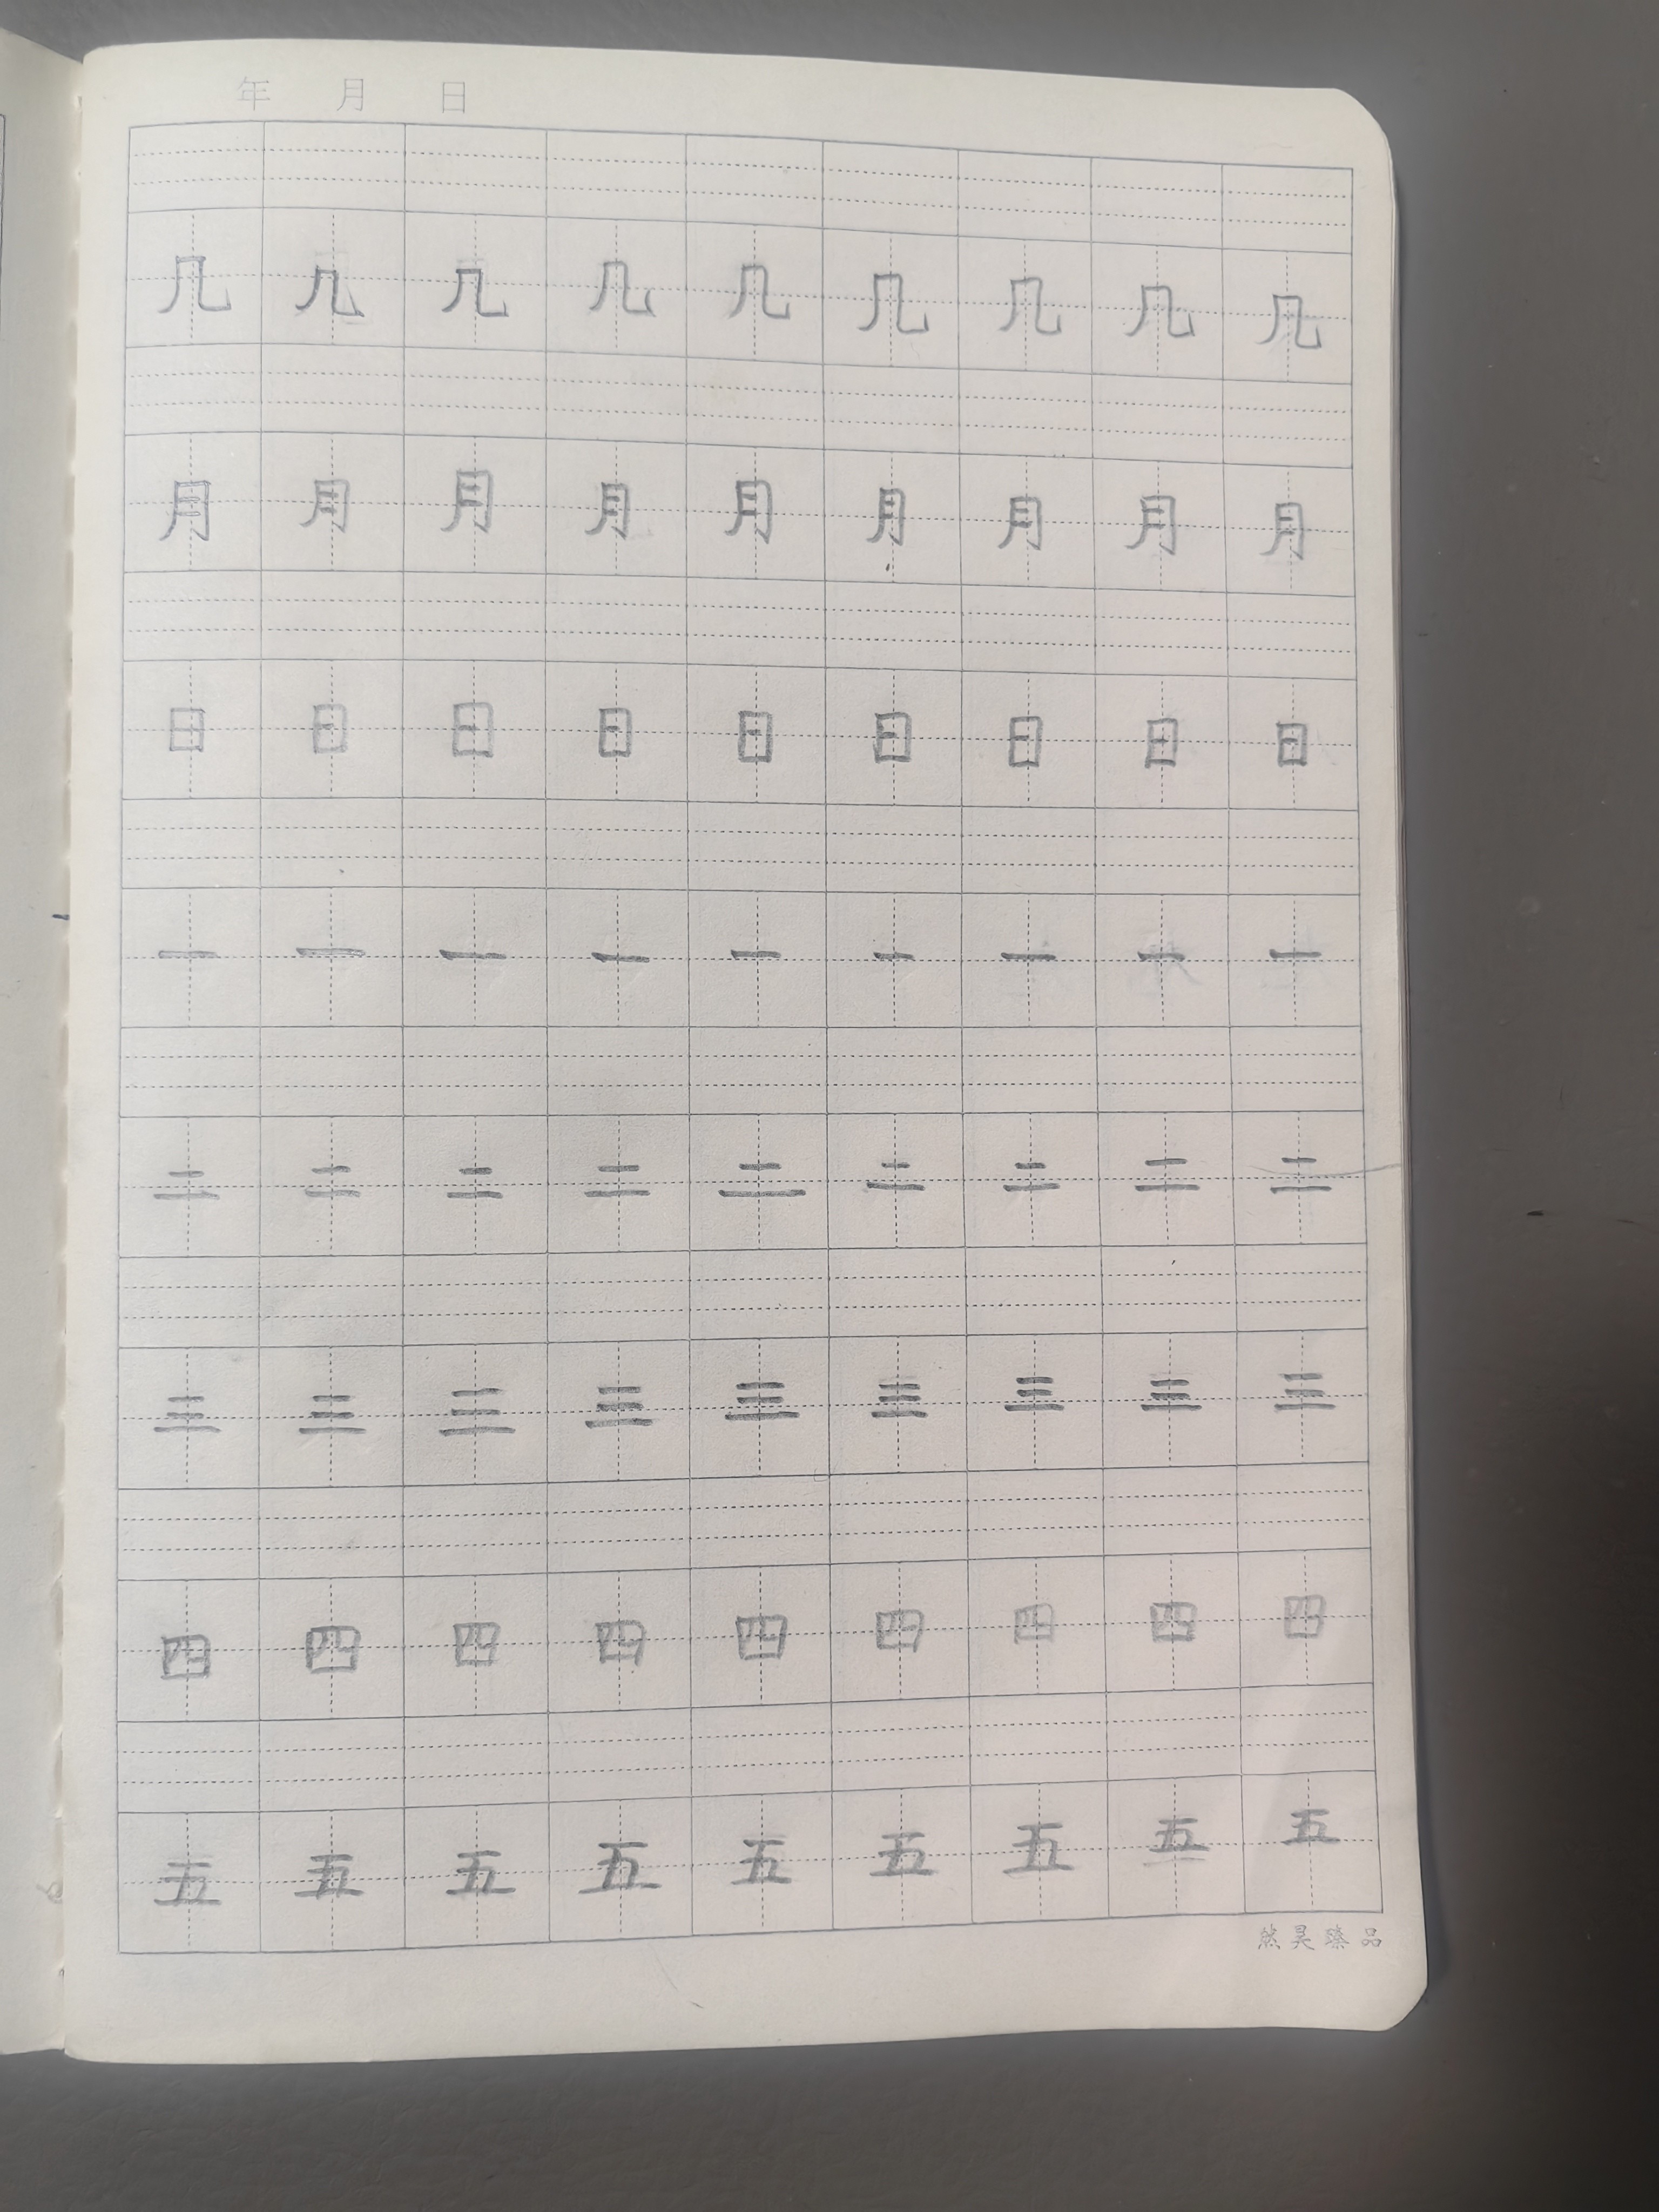 年 月 日
几 几 几 几 几 几 几 几 几
月 月 月 月 月 月 月 月 月
日 日 日 日 日 日 日 日 日
一 一 一 一 一 一 一 一 一
二 二 二 二 二 二 二 二 二
三 三 三 三 三 三 三 三 三
四 四 四 四 四 四 四 四 四
五 五 五 五 五 五 五 五 五
昊臻品